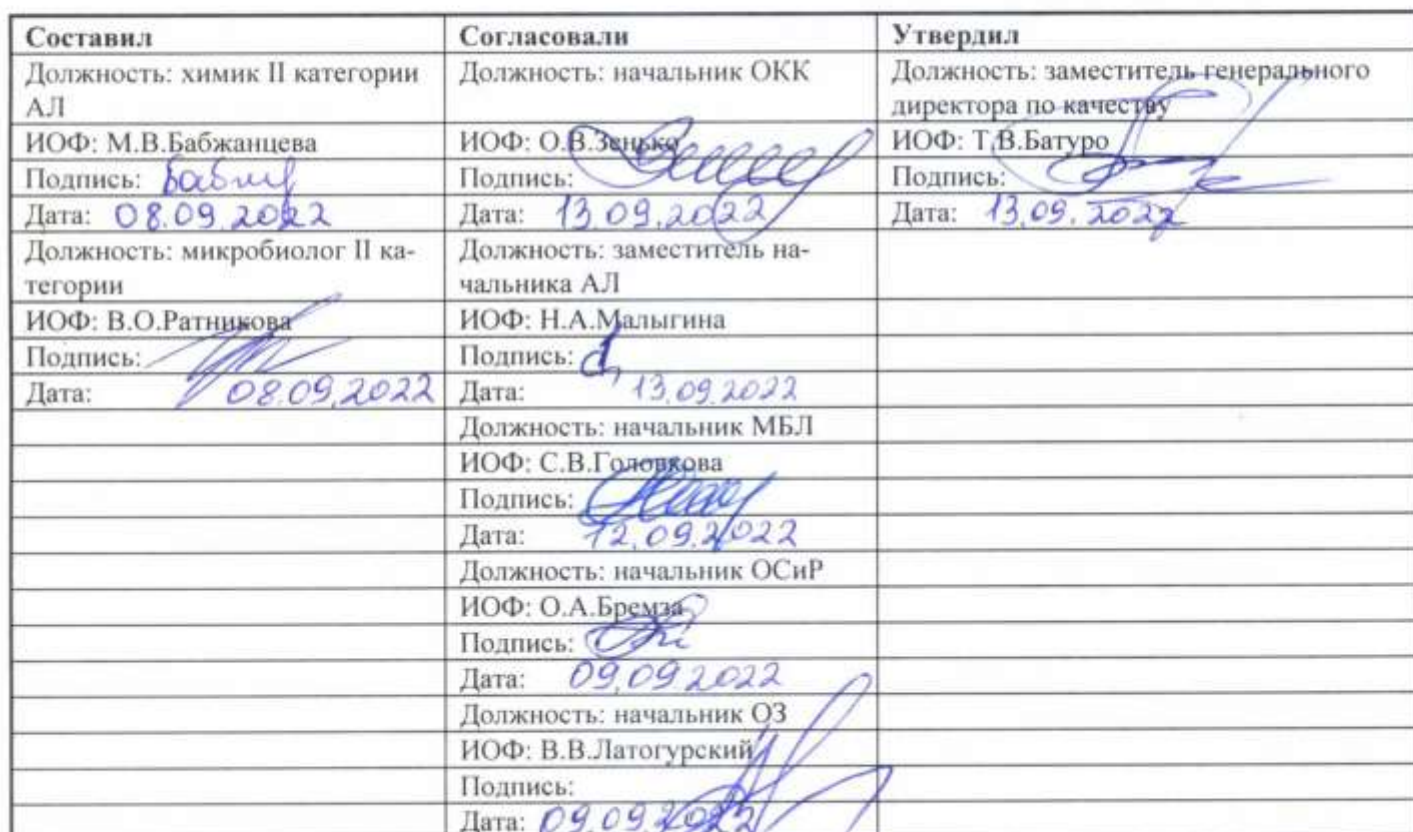 Составил Согласовали Утвердил
Должность: химик II категории Должность: начальник ОКК Должность: заместитель генерального
АЛ директора по качеству
ИОФ: М.В.Бабжанцева ИОФ: О.В.Зенько ИОФ: Т.В.Батуро
Подпись: Подпись: Подпись:
Дата: 08.09.2022 Дата: 13.09.2022 Дата: 13.09.2022
Должность: микробиолог II ка- Должность: заместитель на-
тегории чальника АЛ
ИОФ: В.О.Ратникова ИОФ: Н.А.Малыгина
Подпись: Подпись:
Дата: 08.09.2022 Дата: 13.09.2022
Должность: начальник МБЛ
ИОФ: С.В.Головкова
Подпись:
Дата: 12.09.2022
Должность: начальник ОСиР
ИОФ: О.А.Бремза
Подпись:
Дата: 09.09.2022
Должность: начальник ОЗ
ИОФ: В.В.Латогурский
Подпись:
Дата: 09.09.2022